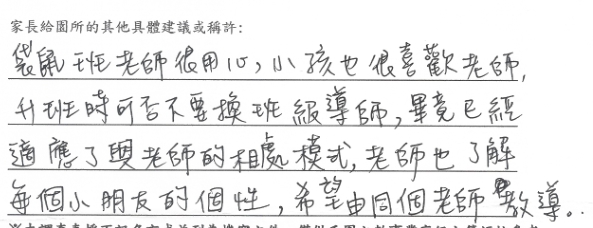 家長給園所的其他具體建議或稱許：
袋鼠班老師很用心，小孩也很喜歡老師，
升班時可否不要換班級導師，畢竟已經
適應了與老師的相處模式，老師也了解
每個小朋友的個性，希望由同個老師教導。